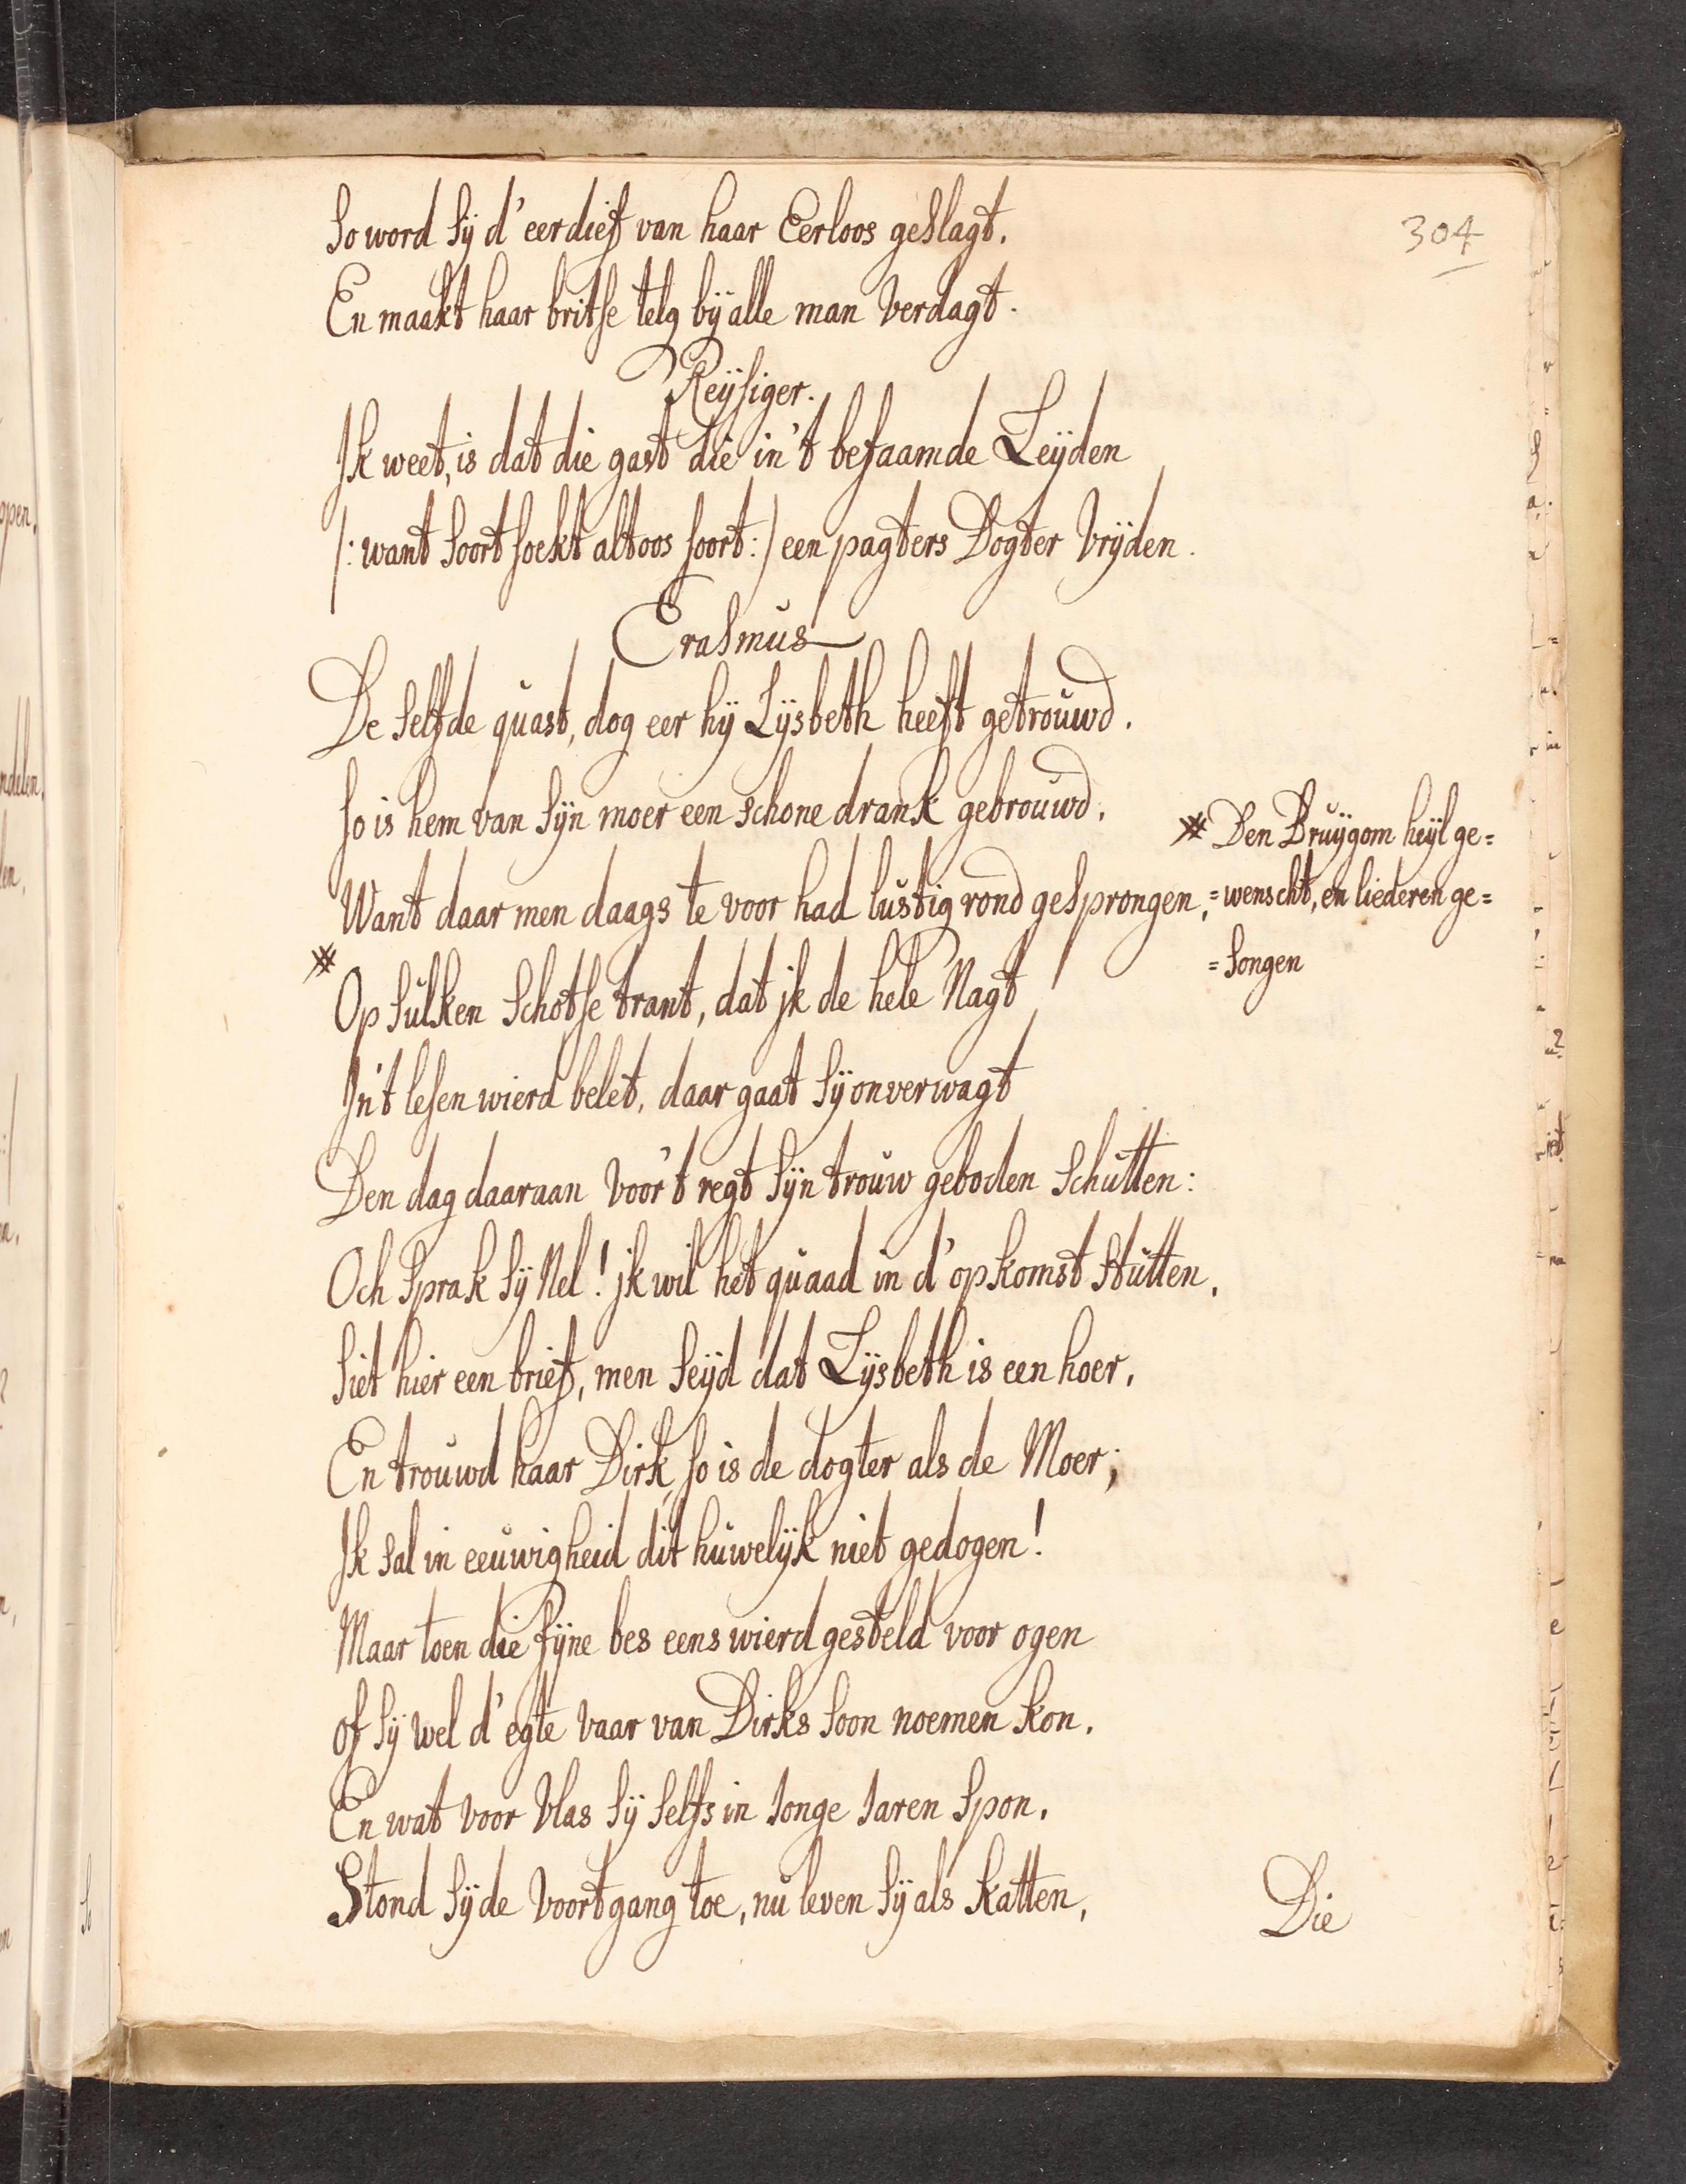 304
So word sÿ d' eerdief van haar Eerloos geslagt,
En maakt haar britse telg bÿ alle man verdagt.
Reÿsiger.
Ik weet, is dat die gast die in 't befaamde Leÿden
/: want soort soekt altoos soort :/ een pagters Dogter Vrÿden.
Erasmus
De selfde quast, dog eer hÿ Lÿsbeth heeft getrouwd,
So is hem van sÿn moer een schone drank gebrouwd,
Want daar men daags te voor had lustig rond gesprongen,
※ Den Bruÿgom heÿl ge=
=wenscht, en liederen ge=
=songen
※
Op sulken Schotse trant, dat jk de hele Nagt
In't lesen wierd belet, daar gaat sÿ onverwagt
Den dag daaraan voor't regt sÿn trouw geboden schutten:
Och sprak sÿ Nel! jk wil het quaad in d'opkomst stutten,
Siet hier een brief, men seÿd dat Lÿsbeth is een hoer,
En trouwd haar Dirk, so is de dogter als de Moer;
Ik sal in eeuwigheid dit huwelÿk niet gedogen!
Maar toen die fÿne bes eens wierd gesteld voor ogen
of sÿ wel d' egte vaar van Dirks soon noemen kon,
En wat voor Vlas sÿ selfs in Jonge Jaren spon,
Stond sÿ de voortgang toe, nu leven sÿ als katten,
Die